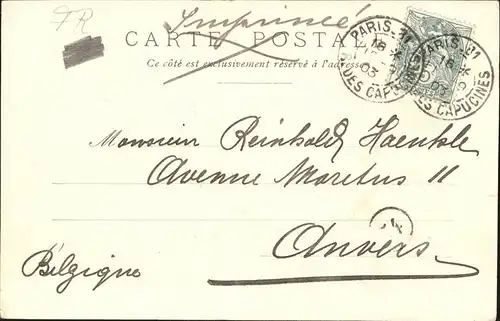 FR
Imprimée
CARTE POSTALE
Ce côté est exclusivement réservé à l'adresse
PARIS
18
03
DES CAPUCINES
PARIS
18
03
DES CAPUCINES
Monsieur Reinhold Haenkle
Avenue Moretus 11
Anvers
Belgique